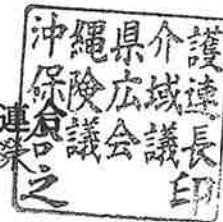 沖縄県介護
保険広域連
合議会議長
之印
連